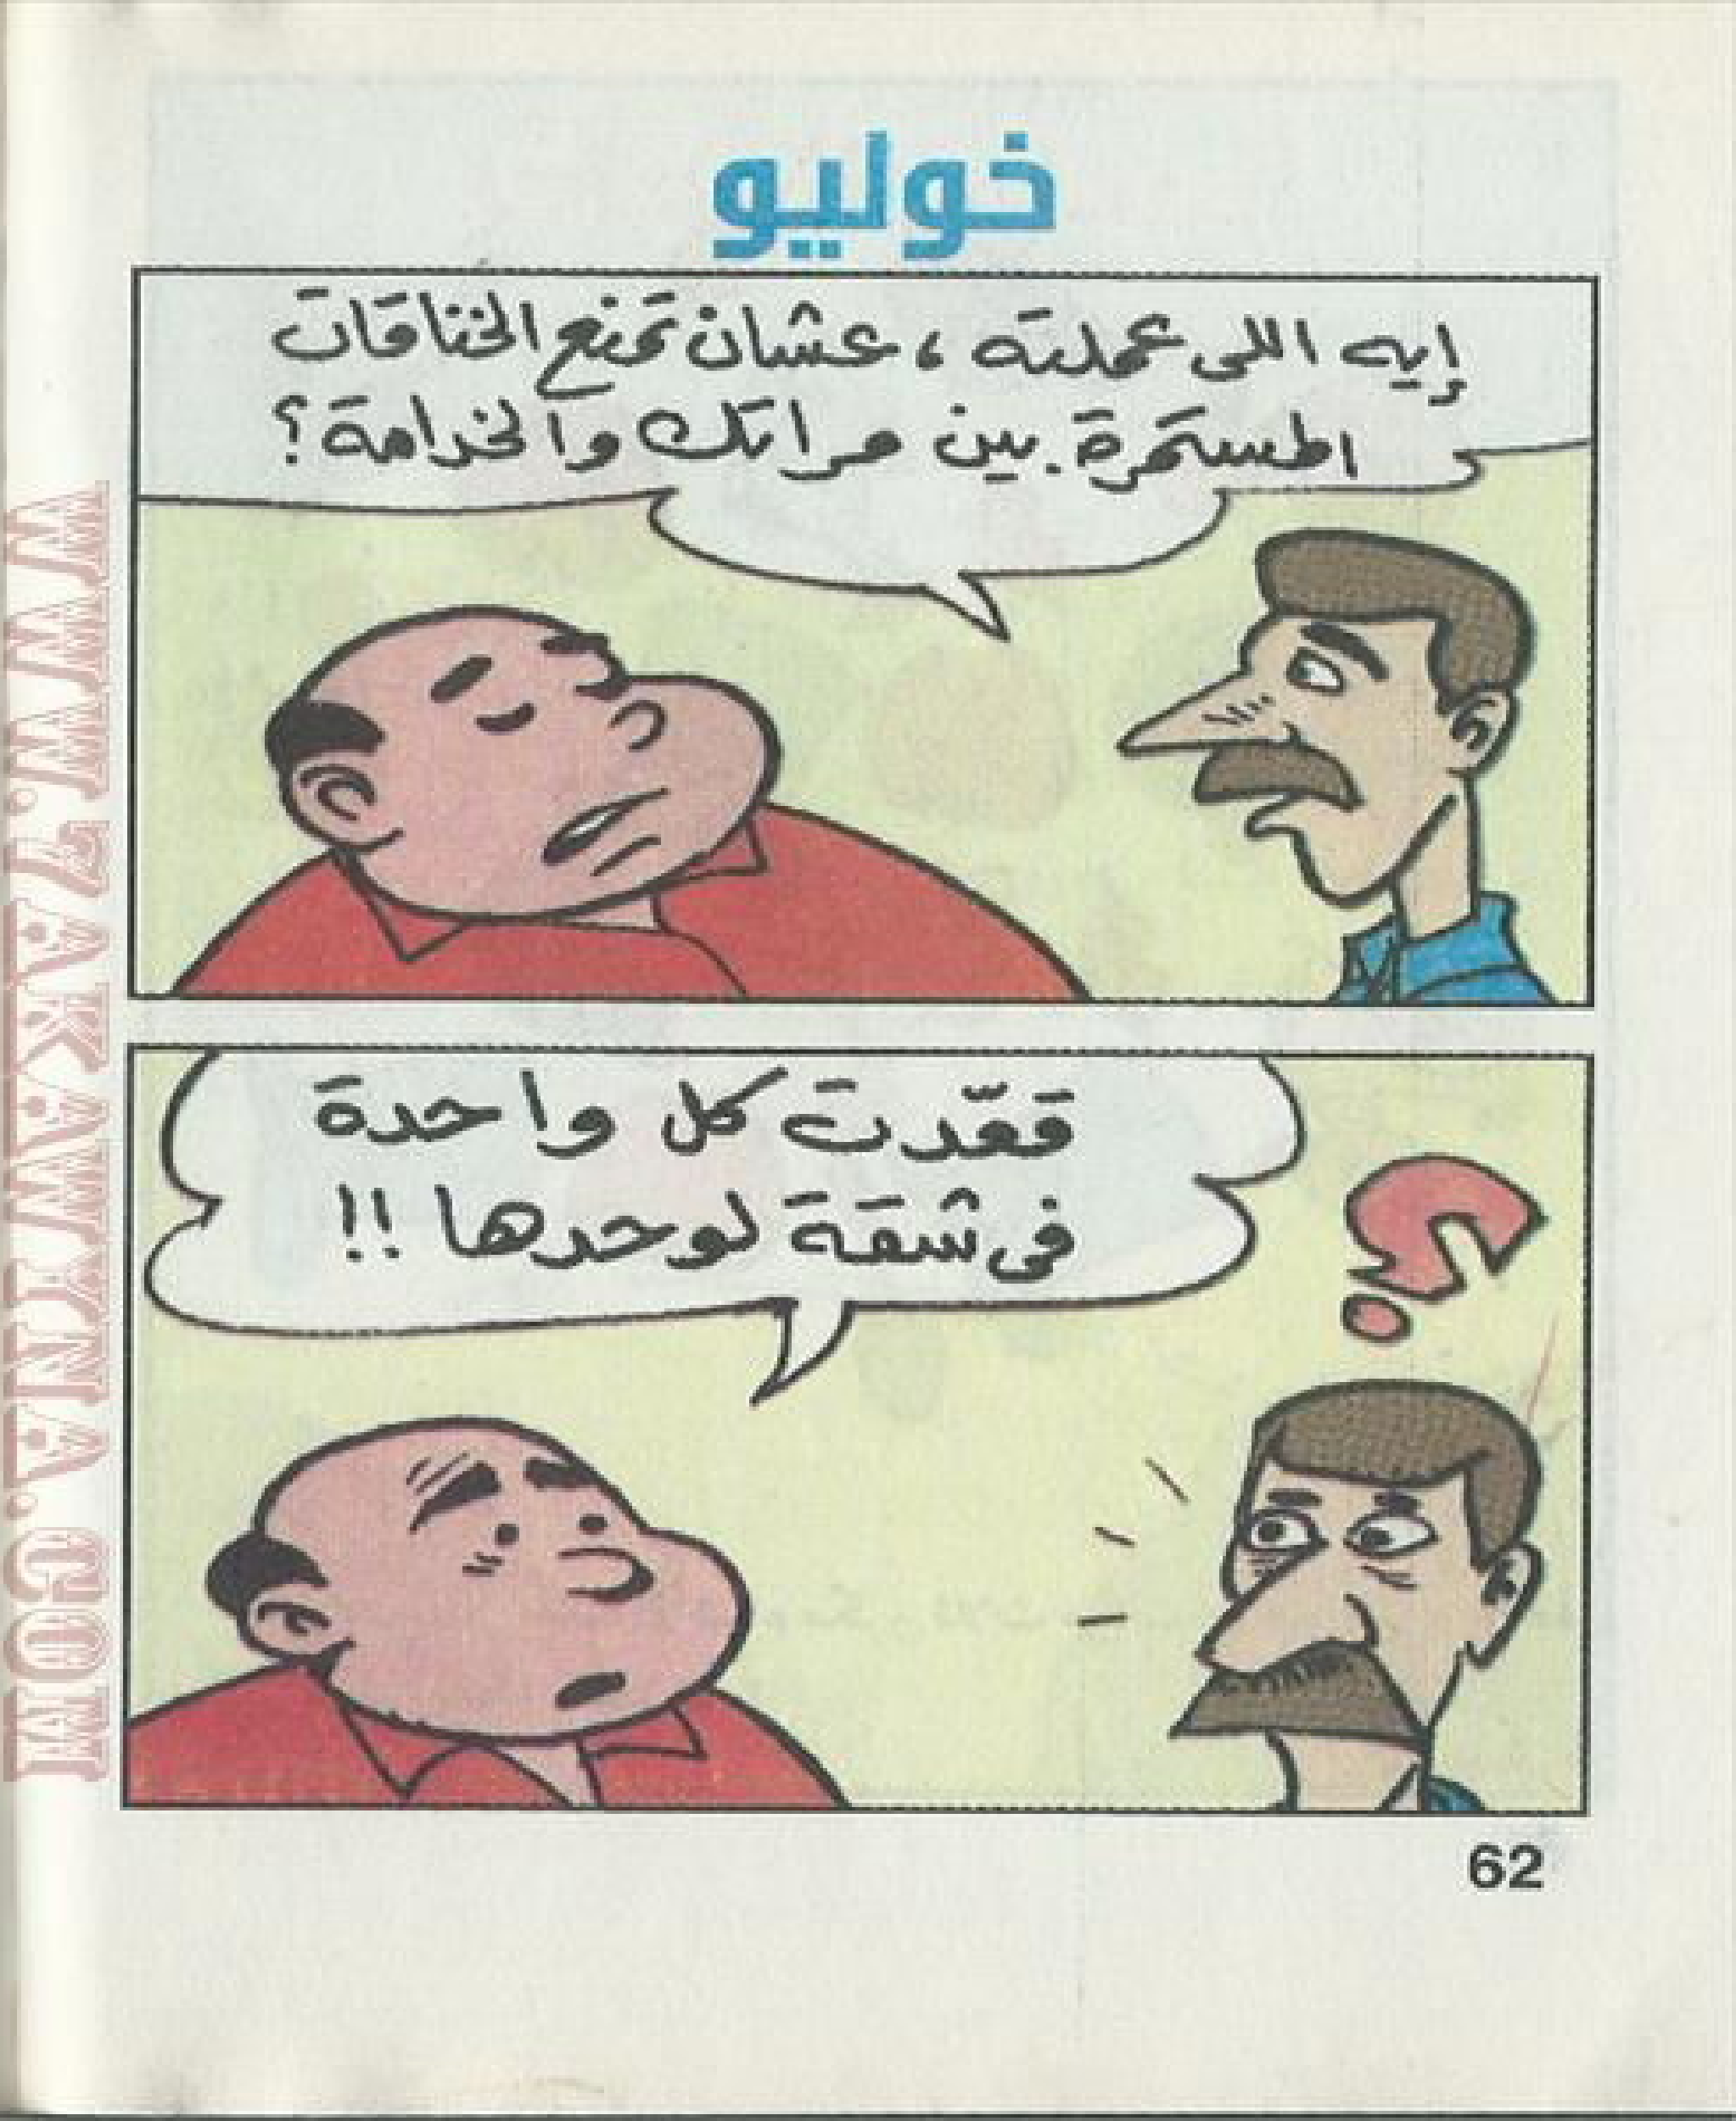 خوليو
إيه اللى عملته ، عشان تمنع الخناقات
المستمرة بين مراتك والخدامة ؟
قعّدت كل واحدة
فى شقة لوحدها !!
؟
62
WWW.7AKAWINA.COM